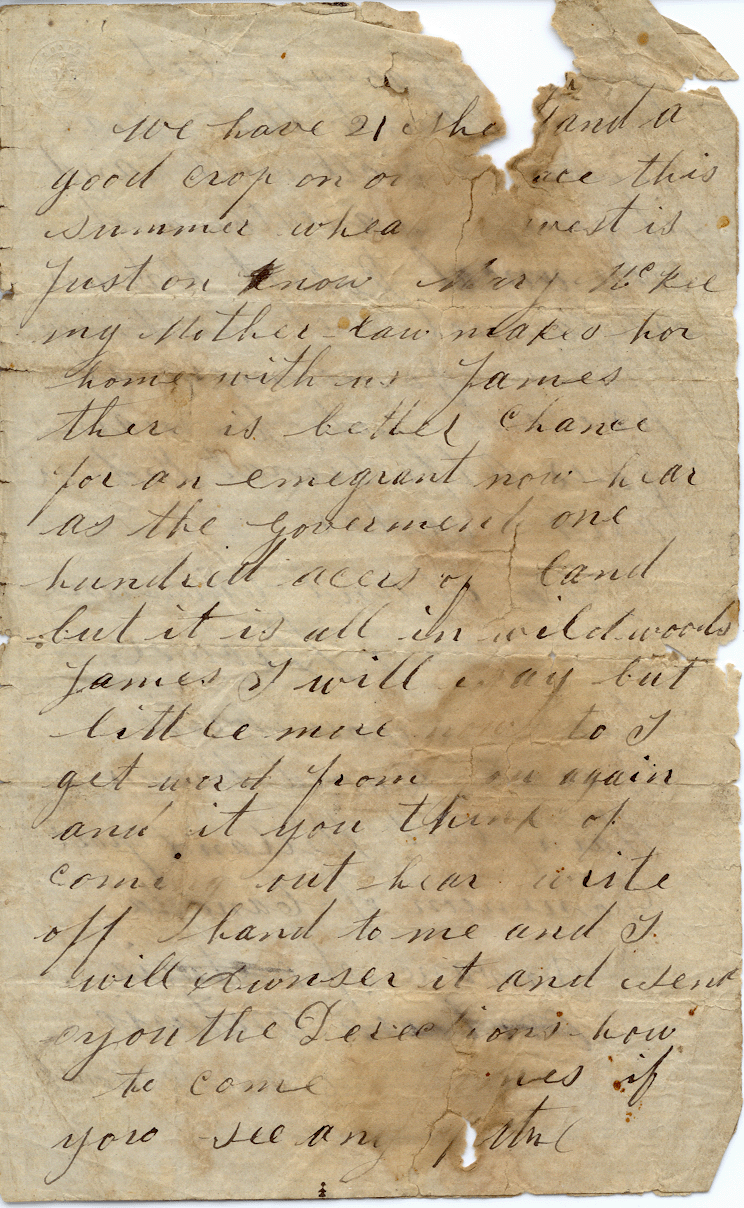 We have 21 and a
good crop on this
summer is
Just on know Mary McKee
my Mother Law makes hor
home with us James
ther is better Chance
for an emegrant now hear
as the Goverment one
hundrid acers of land
but it is all in wild woods
James I will say but
little more now to I
get word from again
and it you think of
coming out hear write
off hand to me and I
will awnser it and send
you the Derections how
to come if
youo see any